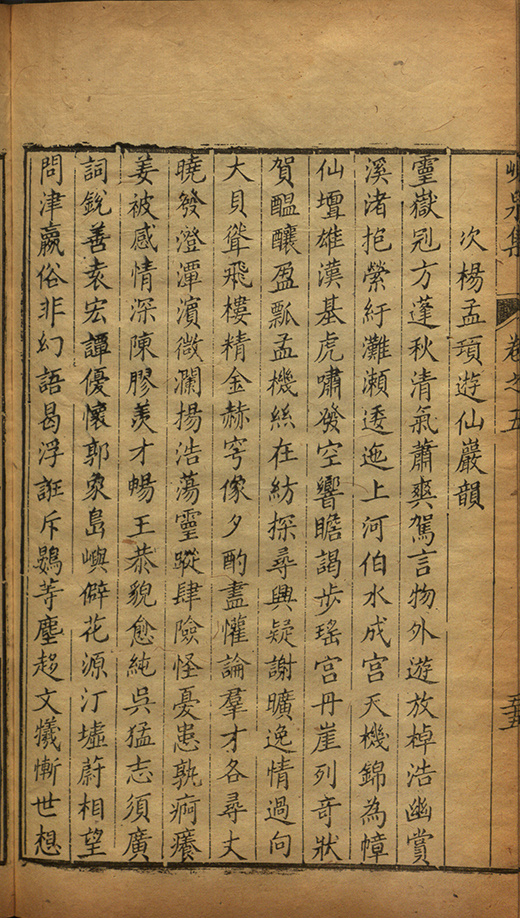 峴泉集
卷之五
次楊孟頊遊仙巖韻
靈嶽冠方蓬秋清氣蕭爽駕言物外遊放棹浩幽賞
溪渚抱縈紆灘瀨逶迤上河伯水成宮天機錦為幛
仙壇雄漢基虎嘯發空響瞻謁步瑤宮丹崖列奇狀
賀醞釀盈瓢孟機絲在紡探尋興疑謝曠逸情過向
大貝聳飛樓精金赫穹像夕酌盡懽論羣才各尋丈
曉發澄潭濵微瀾揚浩蕩靈蹤肆險怪憂患孰痾癢
姜被感情深陳膠羨才暢王恭貌愈純吳猛志須廣
詞銳善袁宏譚優懷郭象島嶼僻花源汀墟蔚相望
問津嬴俗非幻語曷浮誑斥鷃等塵超文犧慚世想